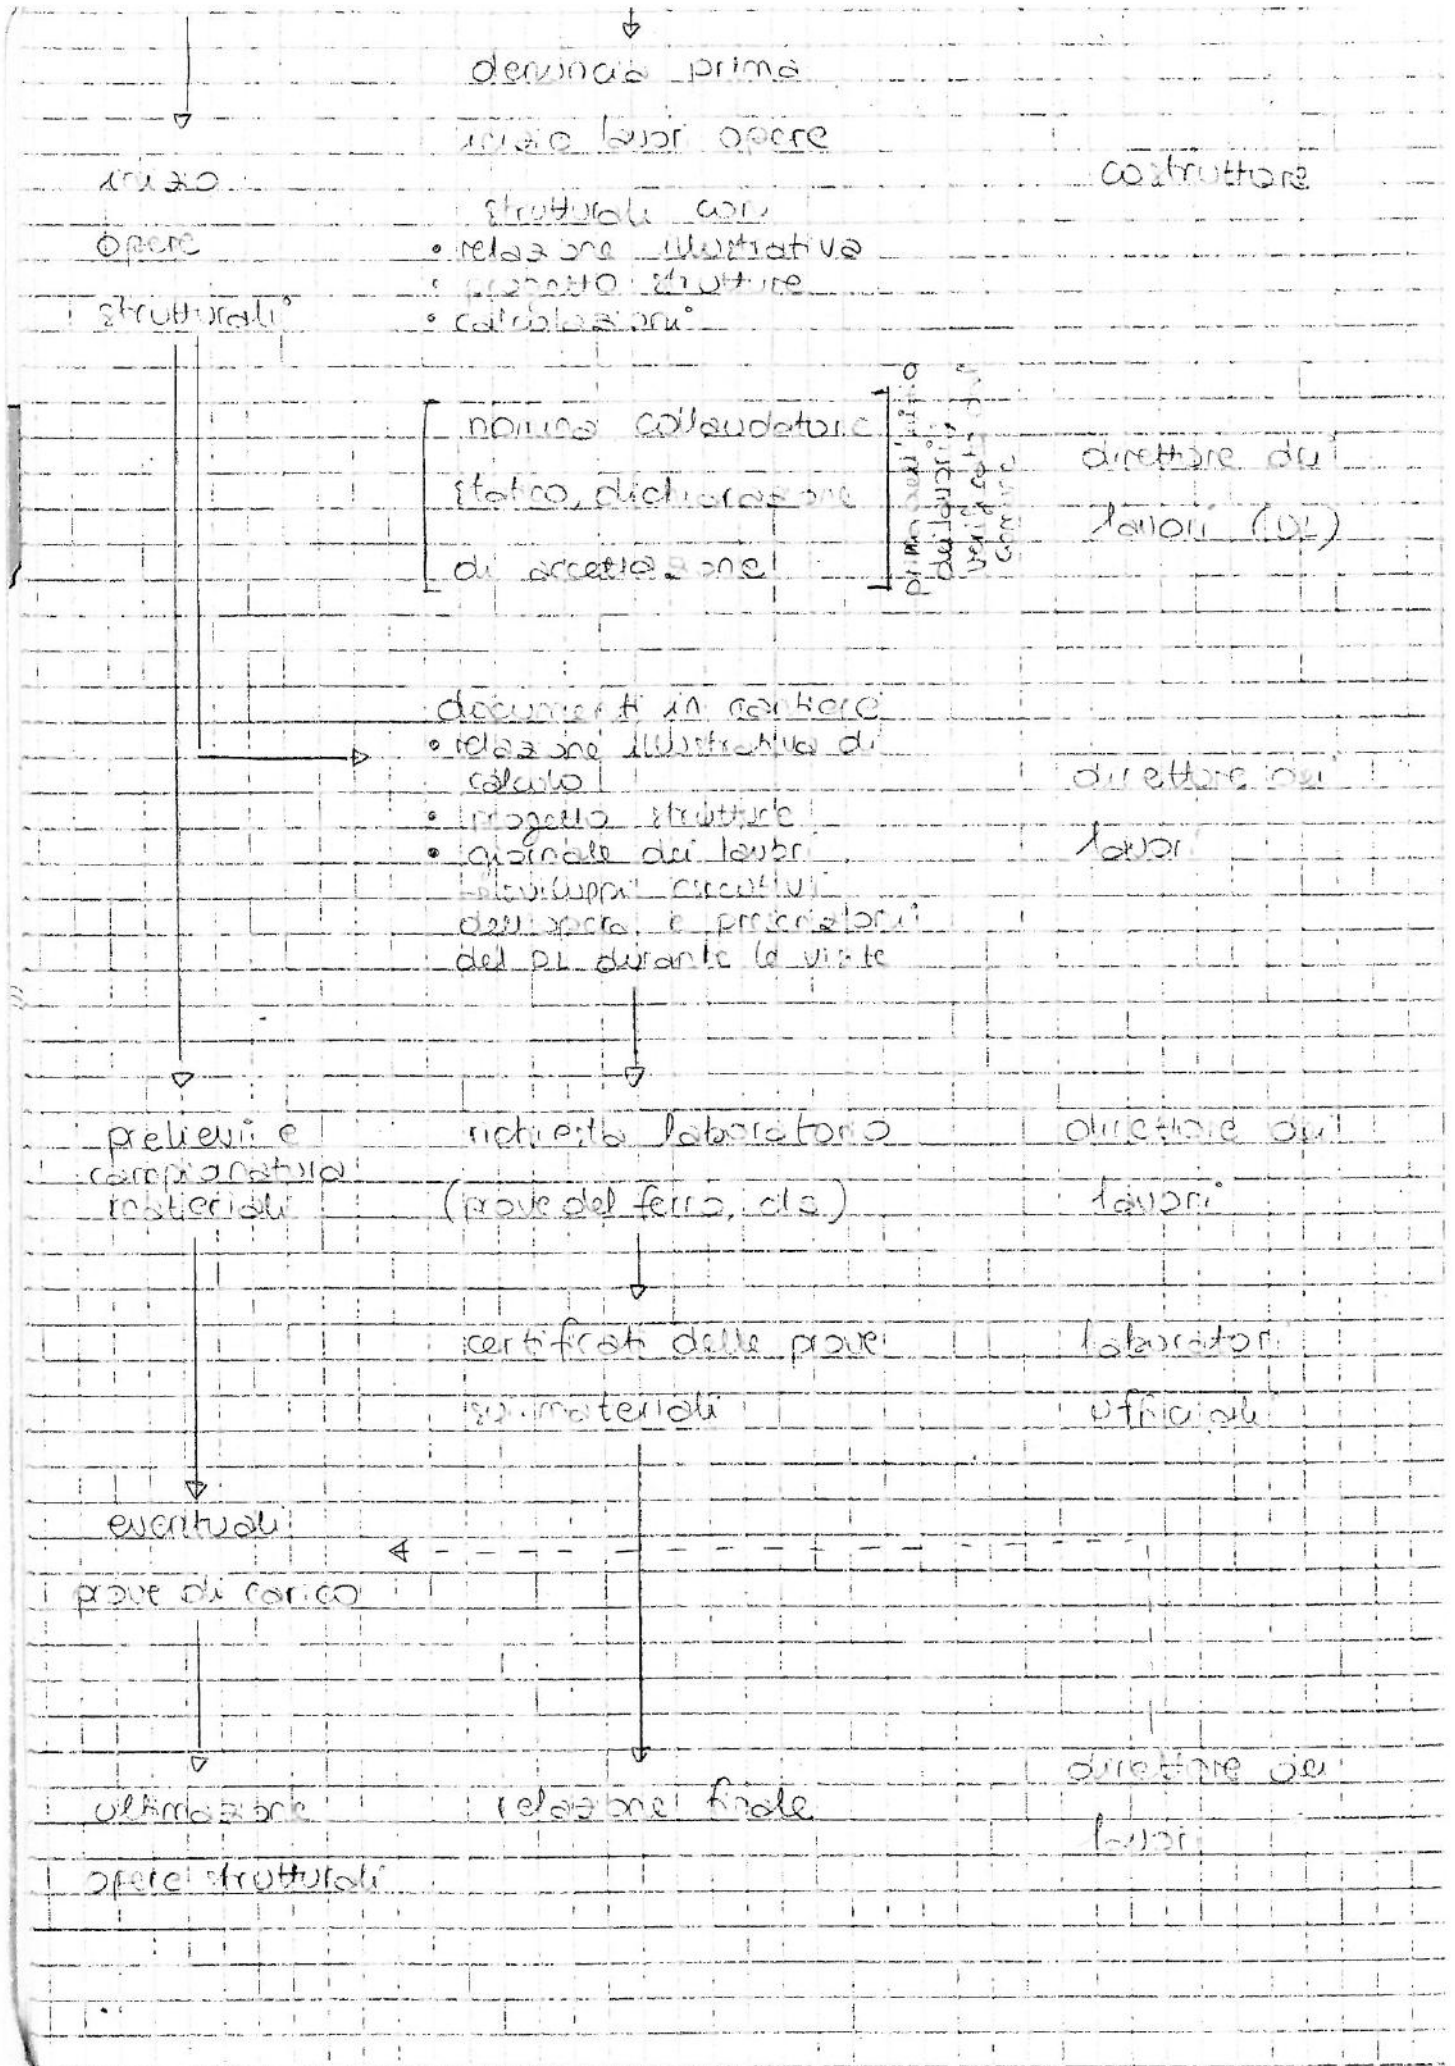 denuncia prima
inizio lavori opere
strutturali con
• relazione illustrativa
• progetto strutture
• calcolazioni
costruttore
inizio
opere
strutturali
nomina collaudatore
statico, dichiarazione
di accettazione
prima dell'inizio
dei lavori
direttore dei
lavori (DL)
documenti in cantiere
• relazione illustrativa di
calcolo
• progetto strutture
• giornale dei lavori
sviluppi esecutivi
dell'opera e prescrizioni
del DL durante le visite
direttore dei
lavori
prelievi e
campionatura
materiali
richiesta laboratorio
(prove del ferro, cls)
direttore dei
lavori
certificati delle prove
sui materiali
laboratori
ufficiali
eventuali
prove di carico
ultimazione
opere strutturali
relazione finale
direttore dei
lavori